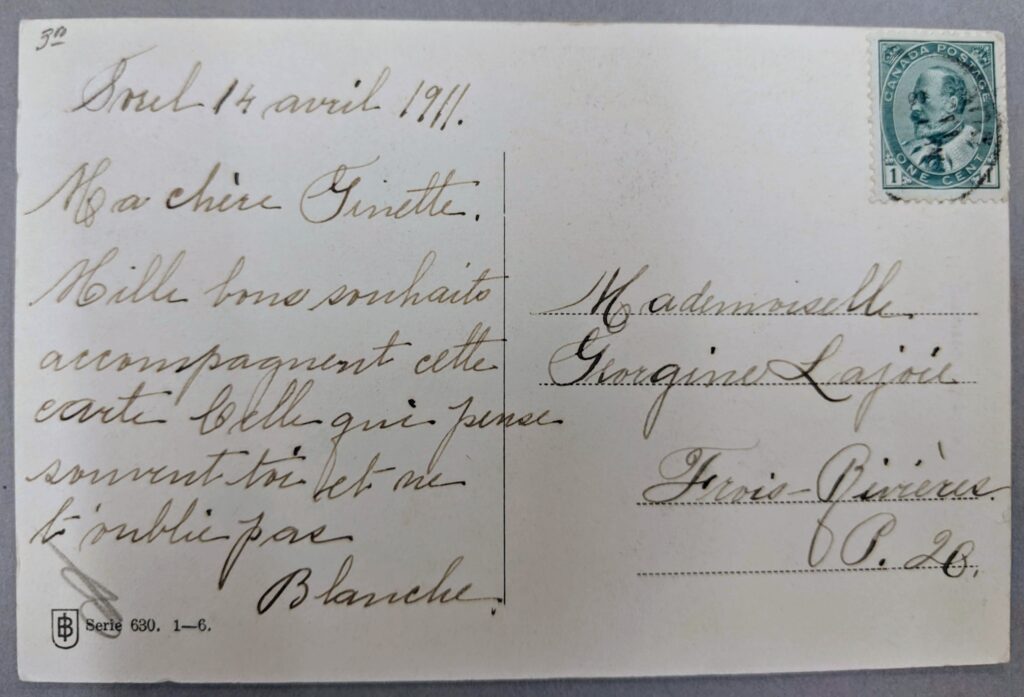 30
Sorel 14 avril 1911.
Ma chère Ginette.
Mille bons souhaits
accompagnent cette
carte Celle qui pense
souvent toi et ne
t'oublie pas
Blanche.
B Serie 630. 1—6.
CANADA POSTAGE
ONE CENT
1 1
Mademoiselle
Georgine Lajoie
Trois-Rivières.
P. 2C.